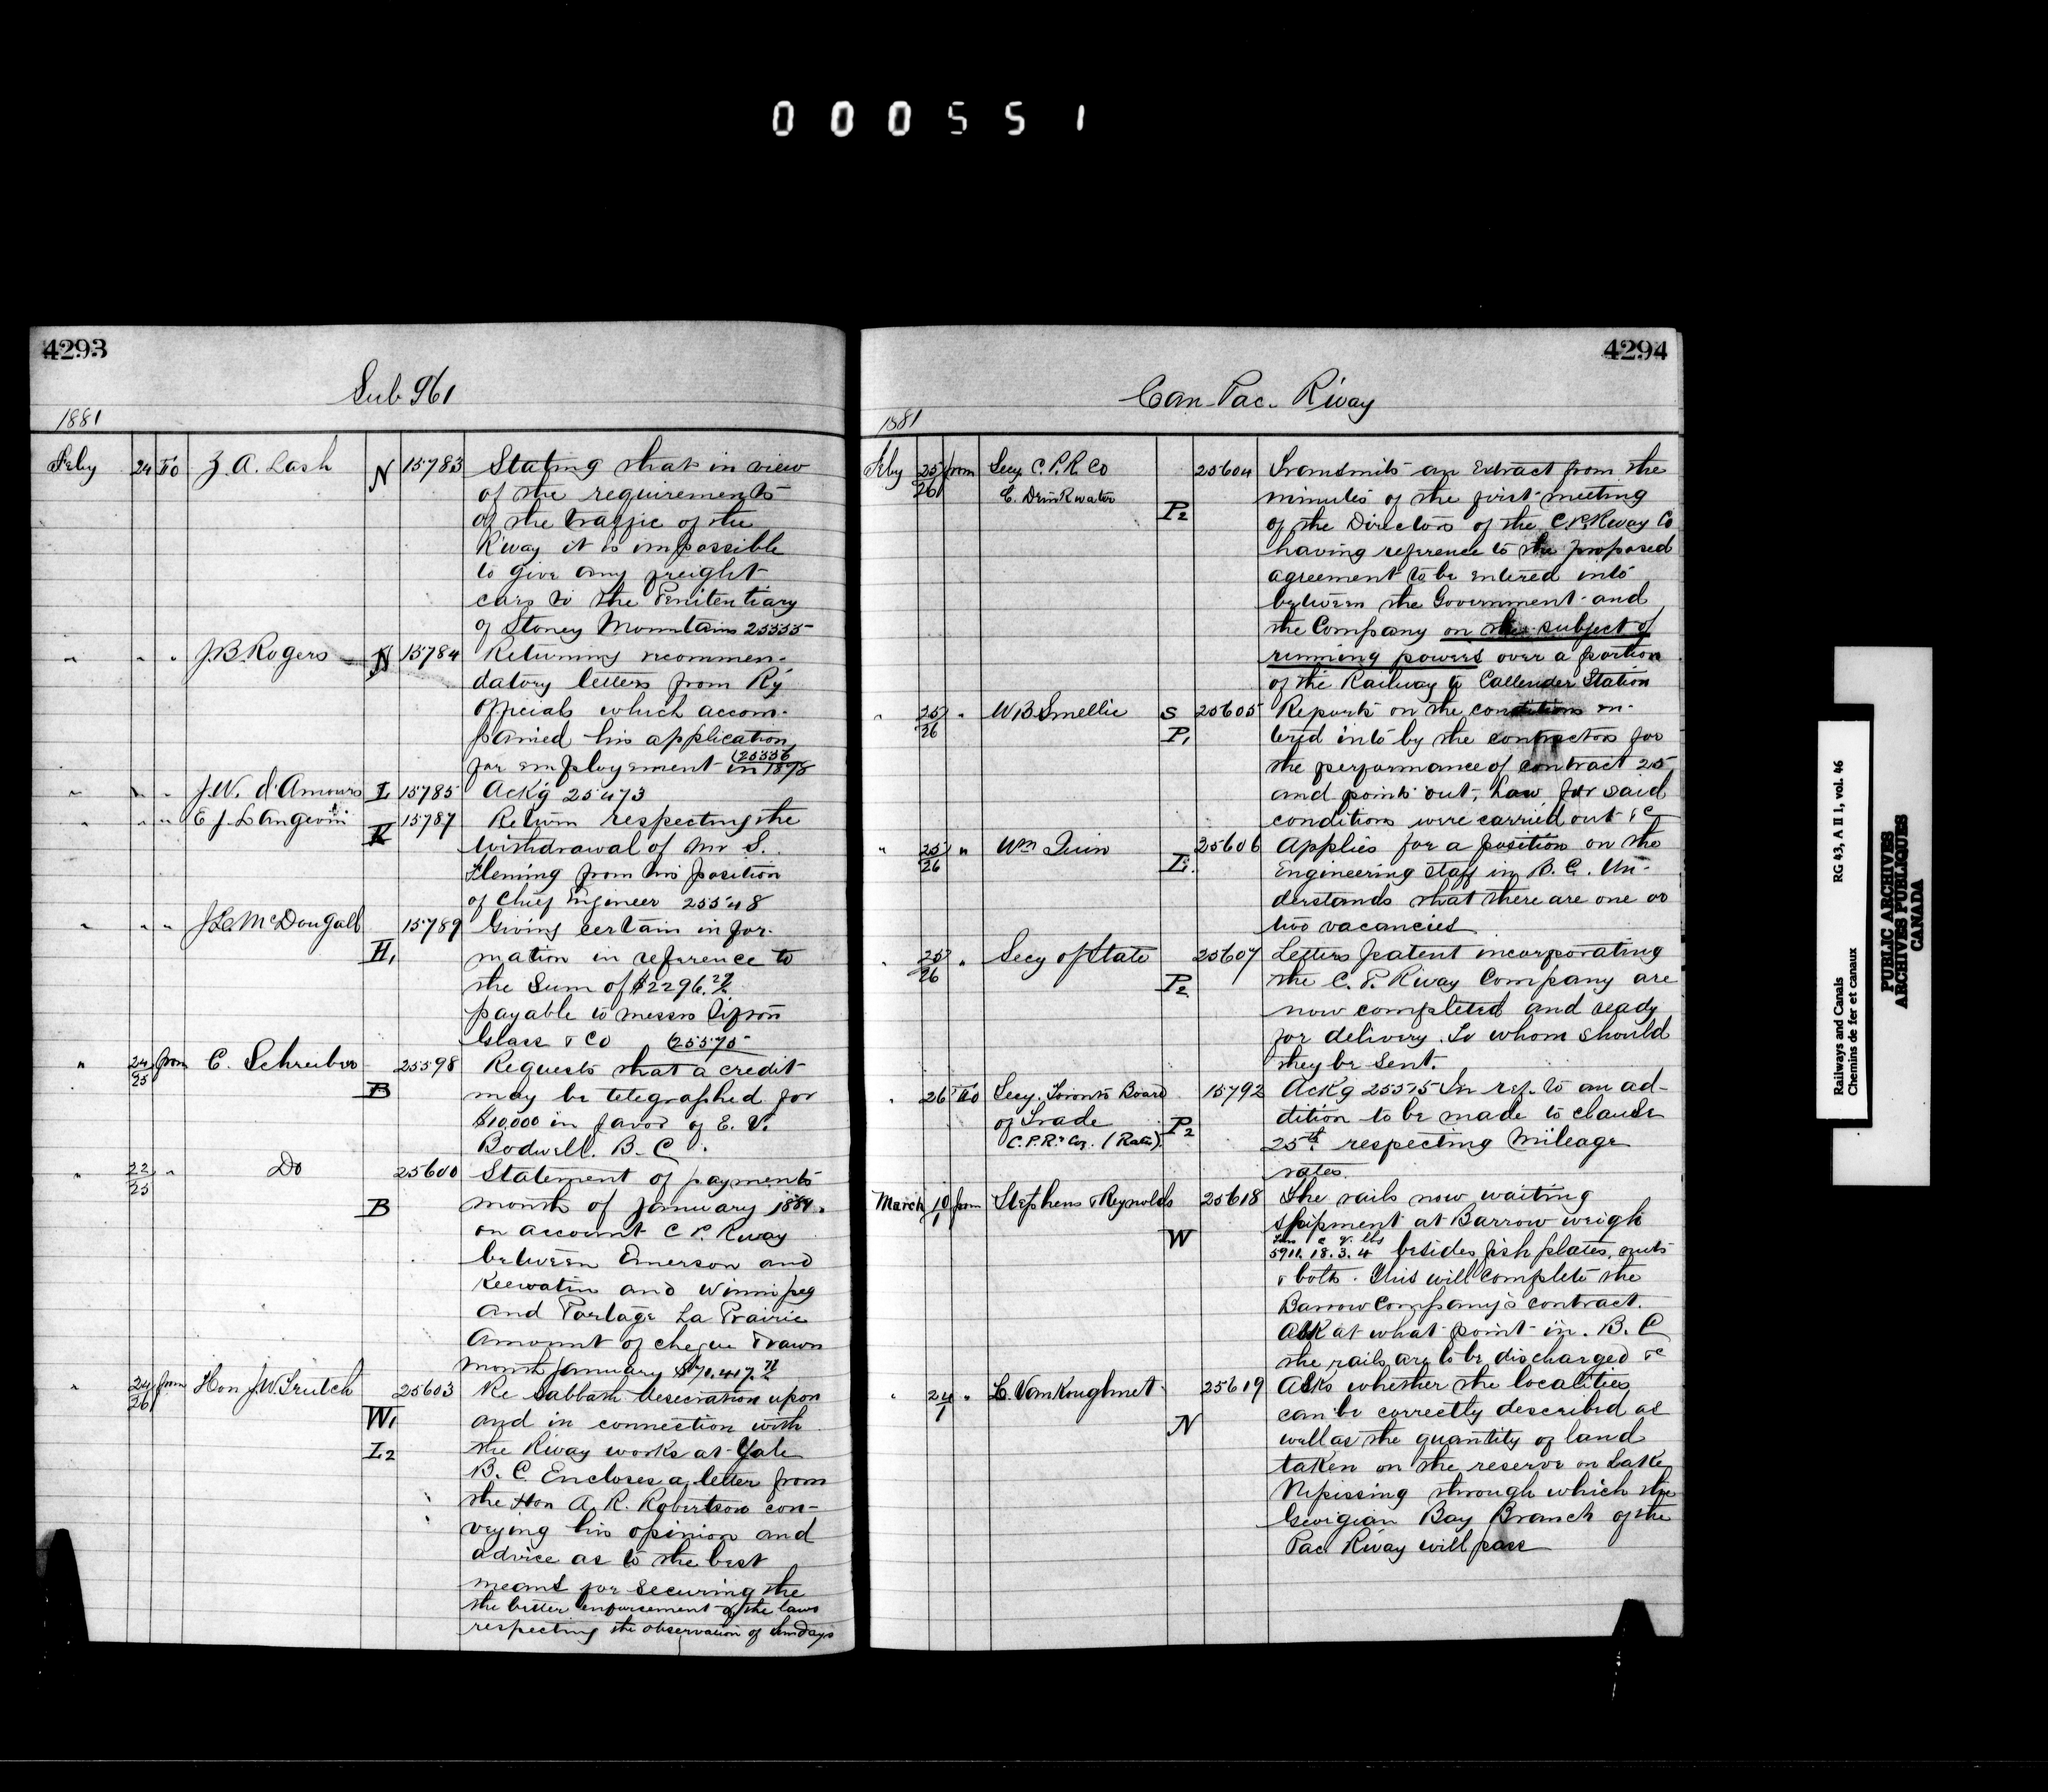 000551
4293
Sub 961
1881
Feby 24 To Z. A. Lash N 15783 Stating that in view
of the requirements
of the traffic of the
R'way it is impossible
to give any freight
cars to the Penitentiary
of Stoney Mountain 25555
" " " J. B. Rogers N 15784 Returning recommen-
datory letters from Ry
Officials which accom-
panied his application
for employement in 1878 (25556
" " " J. W. d'Amours I 15785 Ackg 25473
" " " E J. Langevin K 15787 Return respecting the
withdrawal of Mr S.
Fleming from his position
of Chief Engineer 25548
" " " J L McDougall H1 15789 Giving certain infor-
mation in reference to
the Sum of $2296.
payable to messrs
Glass & Co (25575
" 24/25 from C. Schreiber B 25598 Requests that a credit
may be telegraphed for
$10,000 in favor of E. V.
Bodwell. B. C.
" 22/25 " Do B 25600 Statement of payments
month of January 1881.
on account C P. Rway
between Emerson and
Keewatin and Winnipeg
and Portage La Prairie
Amount of cheque drawn
month January $70.417.
" 24/26 from Hon J. W. Trutch W1 I2 25603 Re Sabbath desecration upon
and in connection with
the Rway works at Yale
B. C. Encloses a letter from
the Hon A. R. Robertson con-
veying his opinion and
advice as to the best
means for securing the
the better enforcement of the laws
respecting the observation of Sundays
4294
Can. Pac. R'way
1881
Feby 25/26 from Secy C. P. R Co 25604 Transmits an Extract from the
E. Drinkwater P2 minutes of the first meeting
of the Directors of the C.P.Rway Co
having reference to the proposed
agreement to be entered into
between the Government and
the Company on the subject of
running powers over a portion
of the Railway to Callender Station
" 25/26 " W B Smellie S P1 25605 Reports on the conditions en-
tered into by the contractors for
the performance of contract 25
and points out, how far said
conditions were carried out &c
" 25/26 " Wm Quin I 25606 Applies for a position on the
Engineering staff in B. C. Un-
derstands that there are one or
two vacancies
" 25/26 " Secy of State P2 25607 Letters patent incorporating
the C. P. Rway Company are
now completed and ready
for delivery. To whom should
they be sent.
" 26 To Secy. Toronto Board 15792 Ackg 25575 In ref. to an ad-
of Trade P2 dition to be made to clause
C.P.R. Co. (Rates) 25th respecting mileage
rates.
March 10/1 from Stephens & Reynolds W 25618 The rails now waiting
shipment at Barrow weigh
Tons c q. lbs
5911. 18. 3. 4 besides fish plates, nuts
& bolts. This will complete the
Barrow Company's contract.
Ask at what point in. B. C
the rails are to be discharged &c
" 24/1 " L. VanKoughnet N 25619 Asks whether the localities
can be correctly described as
well as the quantity of land
taken on the reserve on Lake
Nipissing through which the
Georgian Bay Branch of the
Pac Rway will pass
Railways and Canals RG 43, A II 1, vol. 46
Chemins de fer et canaux
PUBLIC ARCHIVES
ARCHIVES PUBLIQUES
CANADA